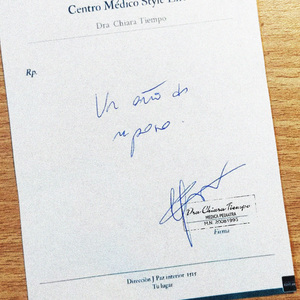 Centro Médico Style
Dra Chiara Tiempo
Rp.
Un año de
reposo.
Dra Chiara Tiempo
MEDICA PEDIATRA
Firma
Dirección J Par interior 1515
Tu lugar